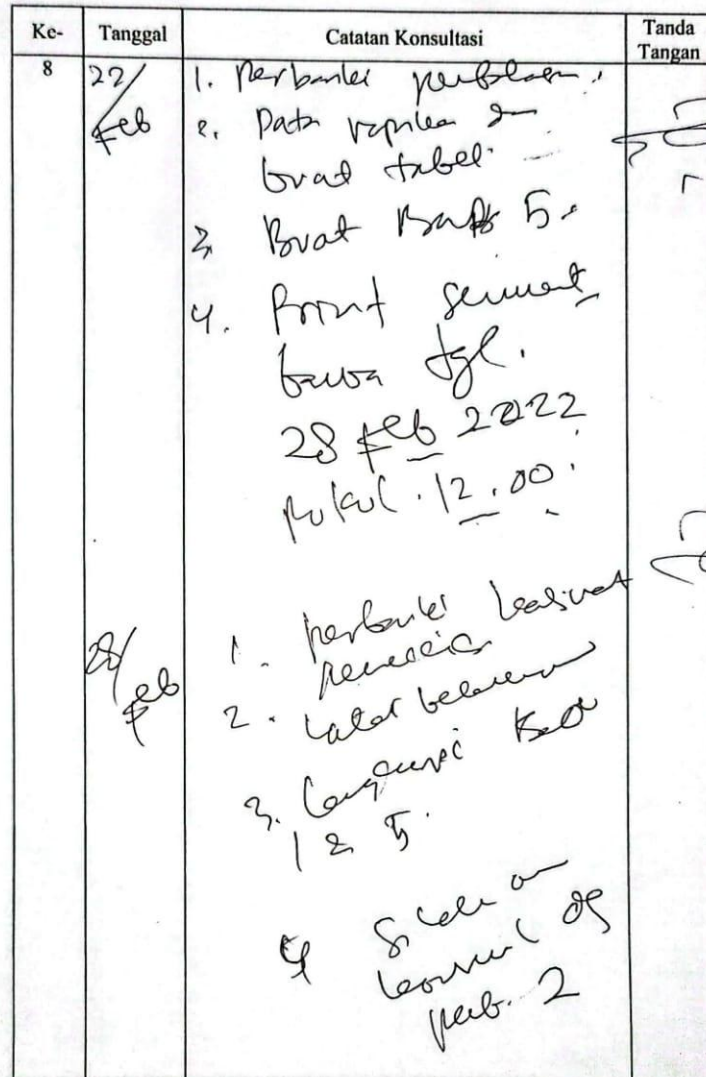 Ke- Tanggal Catatan Konsultasi Tanda Tangan
8 22/ Feb 1. Perbaiki
2. Data rapikan dan
buat tabel
3. Buat Bab 5.
4. Print
bawa tgl.
28 Feb 2022
pukul. 12.00.
28/ Feb 1. Perbaiki
2. Latar belakang
3. Lengkapi Bab
1 & 5.
4 Silakan
konsul dg
pemb. 2